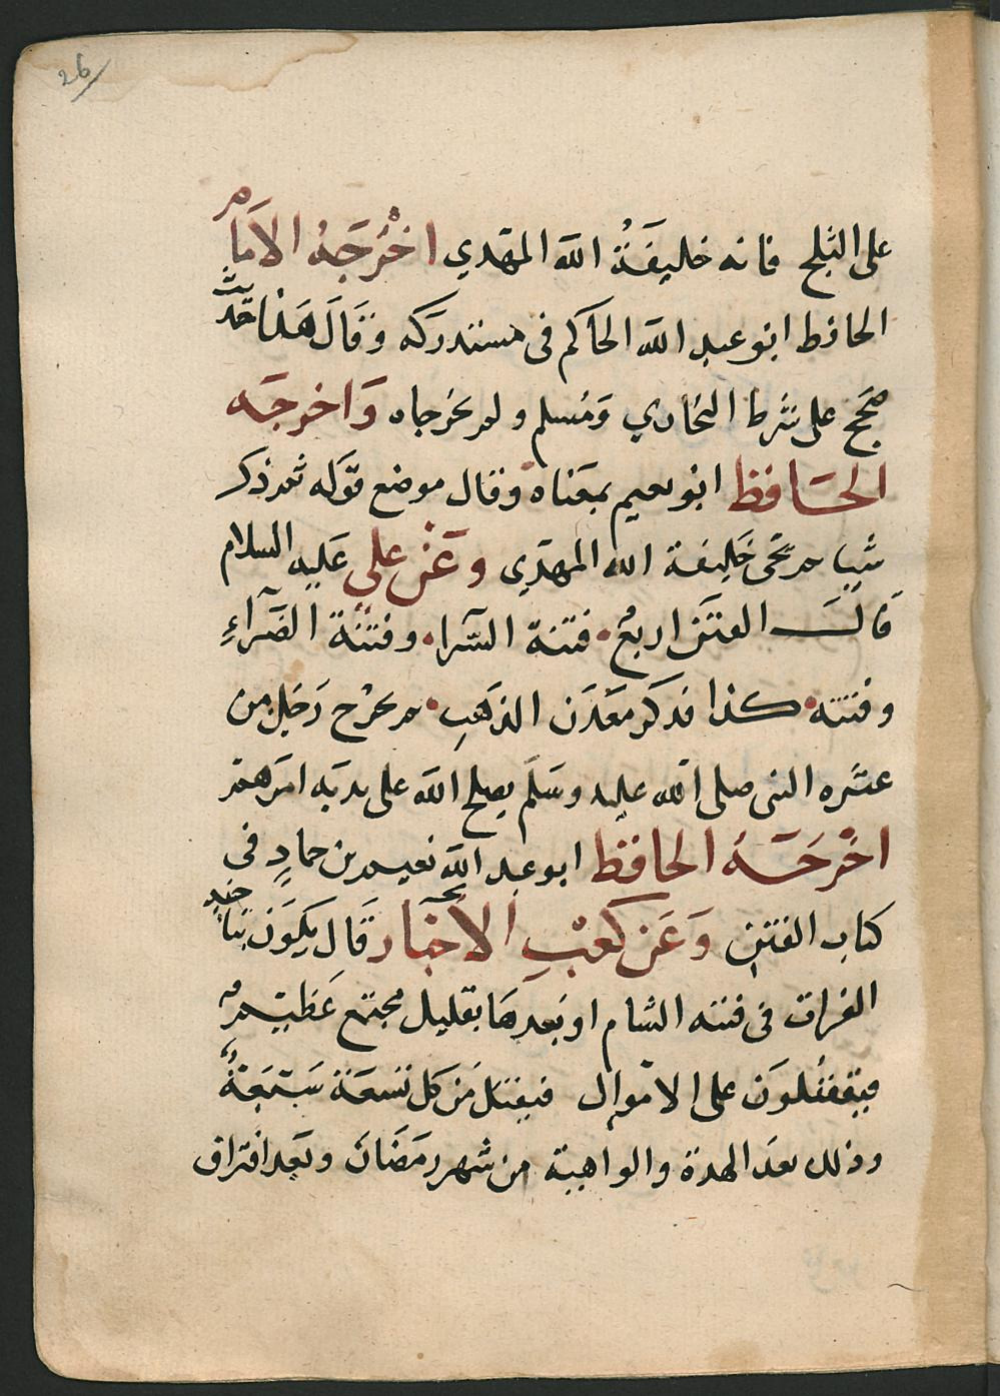 26
على الثلج فانه خليفة الله المهدي اخرجه الامام
الحافظ ابو عبد الله الحاكم فى مستدركه وقال هذا حديث
صحيح على شرط البخاري ومسلم ولم يخرجاه واخرجه
الحافظ ابو نعيم بمعناه وقال موضع قوله ثم ذكر
شيا ثم يجى خليفة الله المهدي وعن على عليه السلام
قال الفتن اربع فتنة السرا وفتنة الضراء
وفتنه كذا فذكر معدن الذهب ثم يخرج رجل من
عتره النبى صلى الله عليه وسلم يصلح الله على يديه امرهم
اخرجه الحافظ ابو عبد الله نعيم بن حماد فى
كتاب الفتن وعن كعب الاحبار قال يكون بناحيه
الفرات فى فتنه الشام او بعدها بقليل مجتمع عظيم
فيقتتلون على الاموال فيقتل من كل تسعة سبعة
وذلك بعد الهدة والواهية من شهر رمضان وبعد افتراق